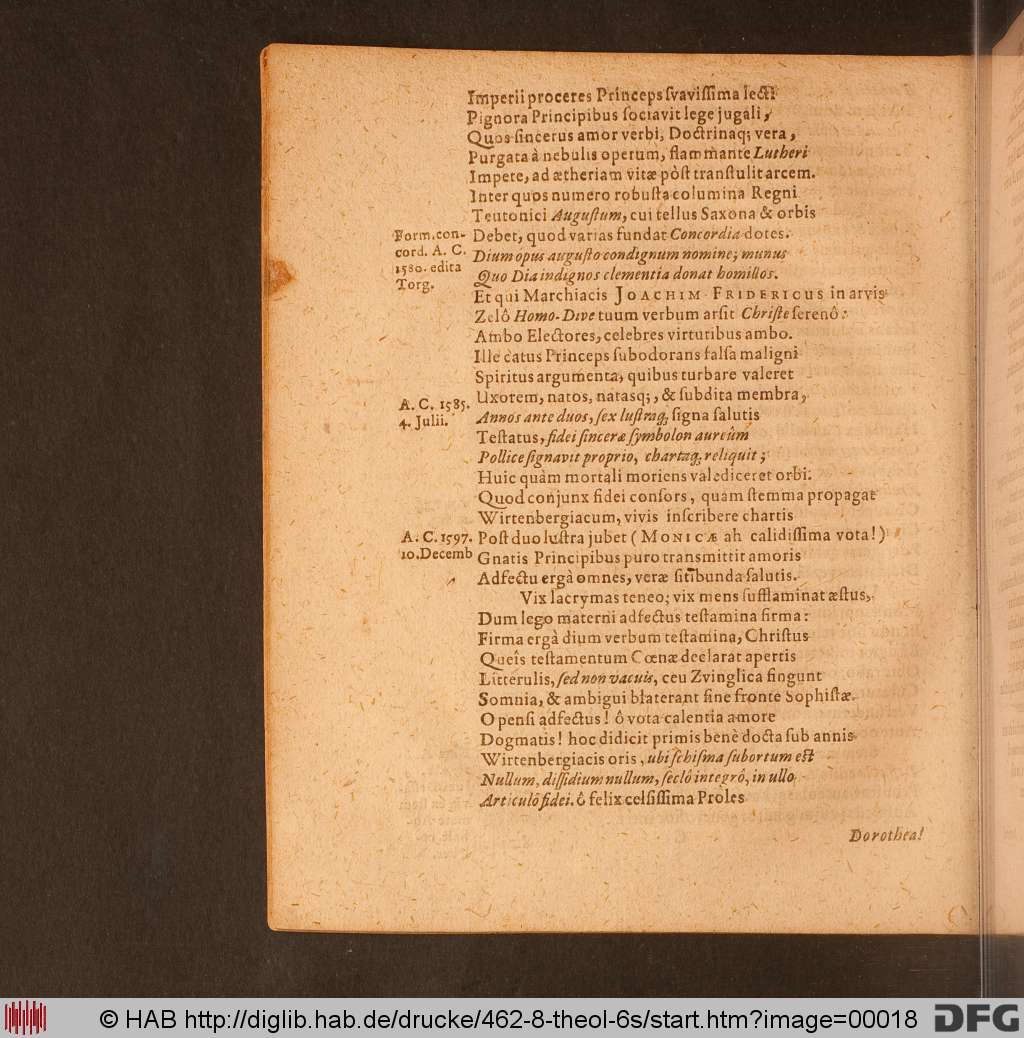 Imperii proceres Princeps ſvaviſſima lecti
Pignora Principibus ſociavit lege jugali,
Quos ſincerus amor verbi, Doctrinaq; vera,
Purgata à nebulis operum, flammante Lutheri
Impete, ad ætheriam vitæ pòſt tranſtulit arcem.
Inter quos numero robuſta columina Regni
Teutonici Auguſtum, cui tellus Saxona & orbis
Form. con-
cord. A. C.
1580. edita
Torg.
Debet, quod varias fundat Concordia dotes.
Dium opus auguſto condignum nomine; munus
Quo Dia indignos clementia donat homillos.
Et qui Marchiacis JOACHIM FRIDERICUS in arvis
Zelô Homo-Dive tuum verbum arſit Chriſte ſerenô:
Ambo Electores, celebres virtutibus ambo.
Ille catus Princeps ſubodorans falſa maligni
Spiritus argumenta, quibus turbare valeret
Uxorem, natos, natasq;, & ſubdita membra,
A. C. 1585.
4. Julii.
Annos ante duos, ſex luſtraq; ſigna ſalutis
Teſtatus, fidei ſinceræ ſymbolon aureûm
Pollice ſignavit proprio, chartaq; reliquit;
Huic quàm mortali moriens valediceret orbi.
Quod conjunx fidei conſors, quam ſtemma propagat
Wirtenbergiacum, vivis inſcribere chartis
A. C. 1597.
10. Decemb
Poſt duo luſtra jubet (MONICÆ ah calidiſſima vota!)
Gnatis Principibus puro transmittit amoris
Adfectu ergà omnes, veræ ſitibunda ſalutis.
Vix lacrymas teneo; vix mens ſufflaminat æſtus,
Dum lego materni adfectus teſtamina firma:
Firma ergà dium verbum teſtamina, Chriſtus
Queîs teſtamentum Cœnæ declarat apertis
Litterulis, ſed non vacuis, ceu Zvinglica fingunt
Somnia, & ambigui blaterant ſine fronte Sophiſtæ.
O penſi adfectus! ô vota calentia amore
Dogmatis! hoc didicit primis benè docta ſub annis
Wirtenbergiacis oris, ubi ſchiſma ſubortum eſt
Nullum, diſſidium nullum, ſeclô integrô, in ullo
Articulô fidei. ô felix celſiſſima Proles
Dorothea!
© HAB http://diglib.hab.de/drucke/462-8-theol-6s/start.htm?image=00018
DFG